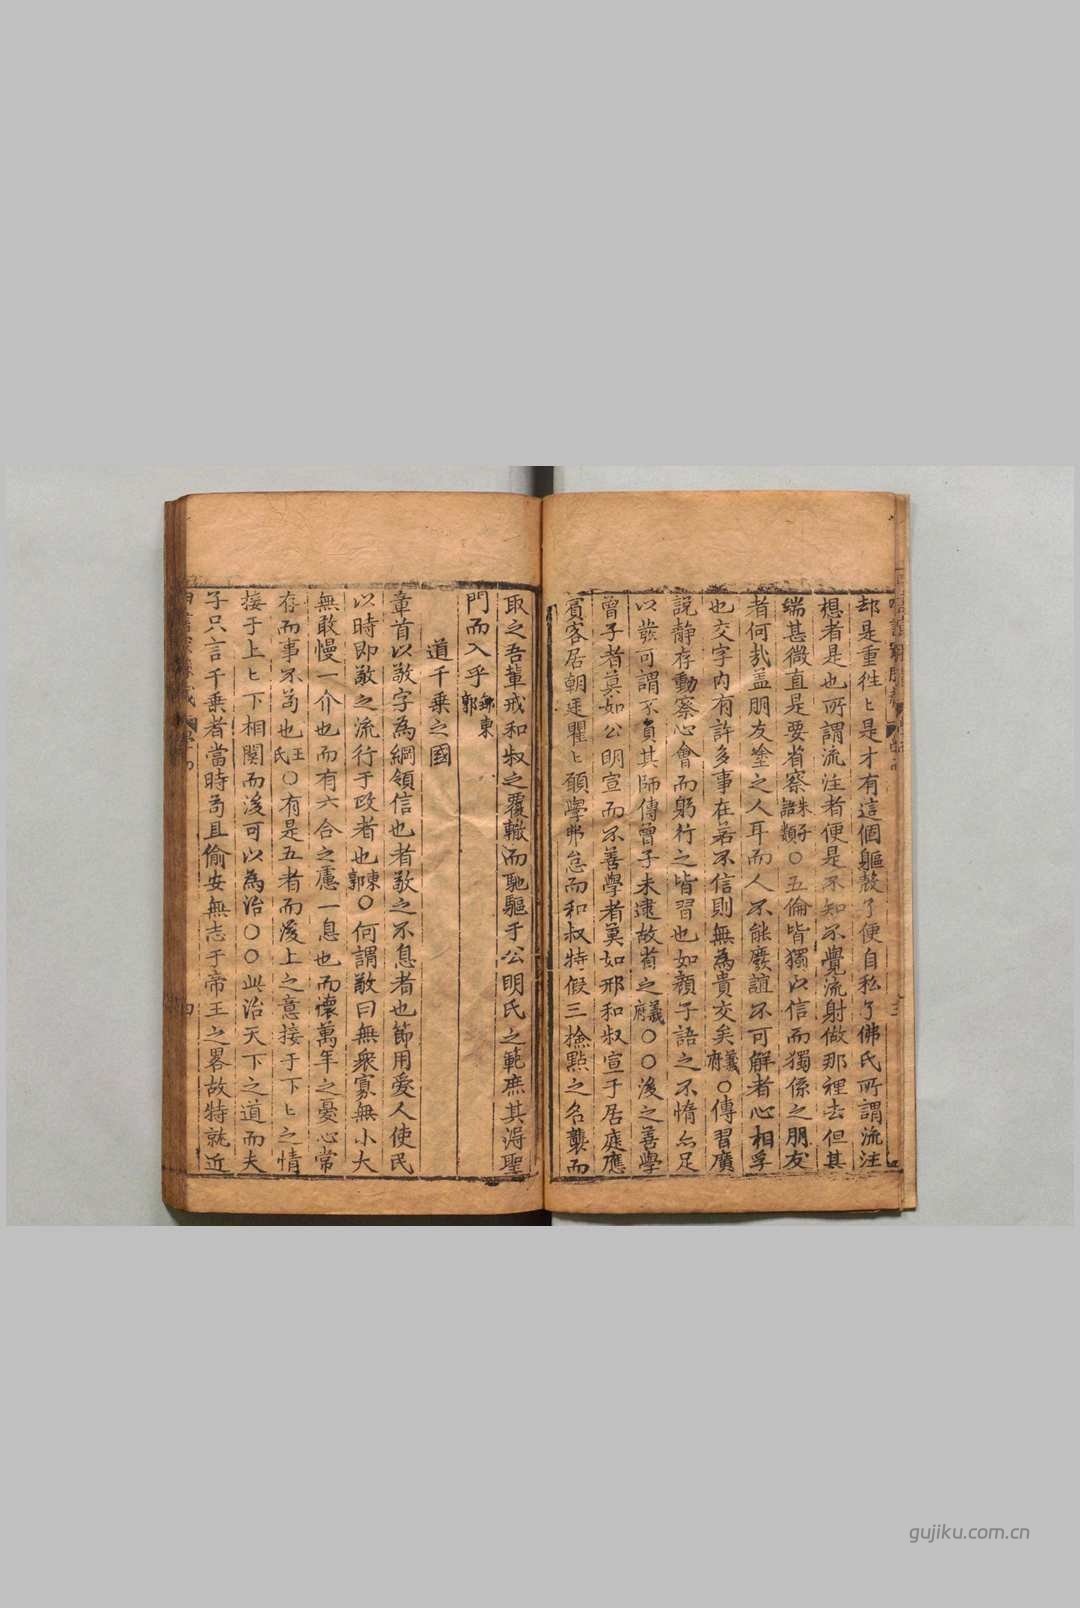 却是重徃〻是才有這個軀殼了便自私了佛氏所謂流注
想者是也所謂流注者便是不知不覺流射做那裡去但其
端甚微直是要省察朱子語類○五倫皆獨以信而獨係之朋友
者何㢤盖朋友塗之人耳而人不能廢誼不可解者心相孚
也交字內有許多事在若不信則無為貴交矣義府○傳習廣
説静存動察心會而躬行之皆習也如顔子語之不惰亦足
以發可謂不負其師傳曾子未逮故省之義府○○後之善學
曾子者莫如公明宣而不善學者莫如邢和叔宣于居庭應
賔客居朝廷瞿〻願學弗怠而和叔特假三撿㸃之名襲而
取之吾輩戒和叔之覆轍而馳驅于公明氏之範庶其淂聖
門而入乎鄒東郭
道千乗之國
章首以敬字為綱領信也者敬之不息者也節用愛人使民
以時即敬之流行于政者也東郭○何謂敬曰無衆寡無小大
無敢慢一介也而有六合之慮一息也而懐萬年之憂心常
存而事不苟也王氏○有是五者而後上之意接于下〻之情
接于上〻下相関而後可以為治○○此治天下之道而夫
子只言千乗者當時苟且偷安無志于帝王之畧故特就近
三
四
gujiku.com.cn